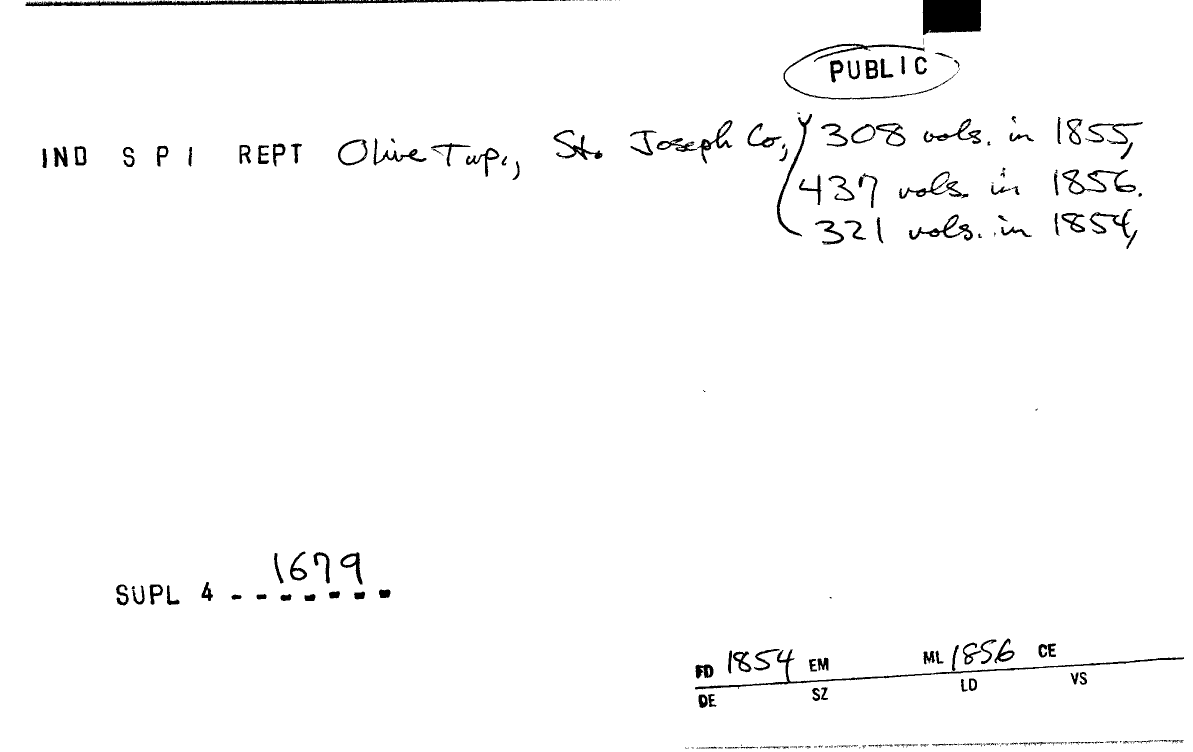 PUBLIC
IND S P I REPT Olive Twp., St. Joseph Co., 308 vols. in 1855,
437 vols. in 1856.
321 vols. in 1854,
1679
SUPL 4 - - - - - - -
FD 1854 EM ML 1856 CE
DE SZ LD VS